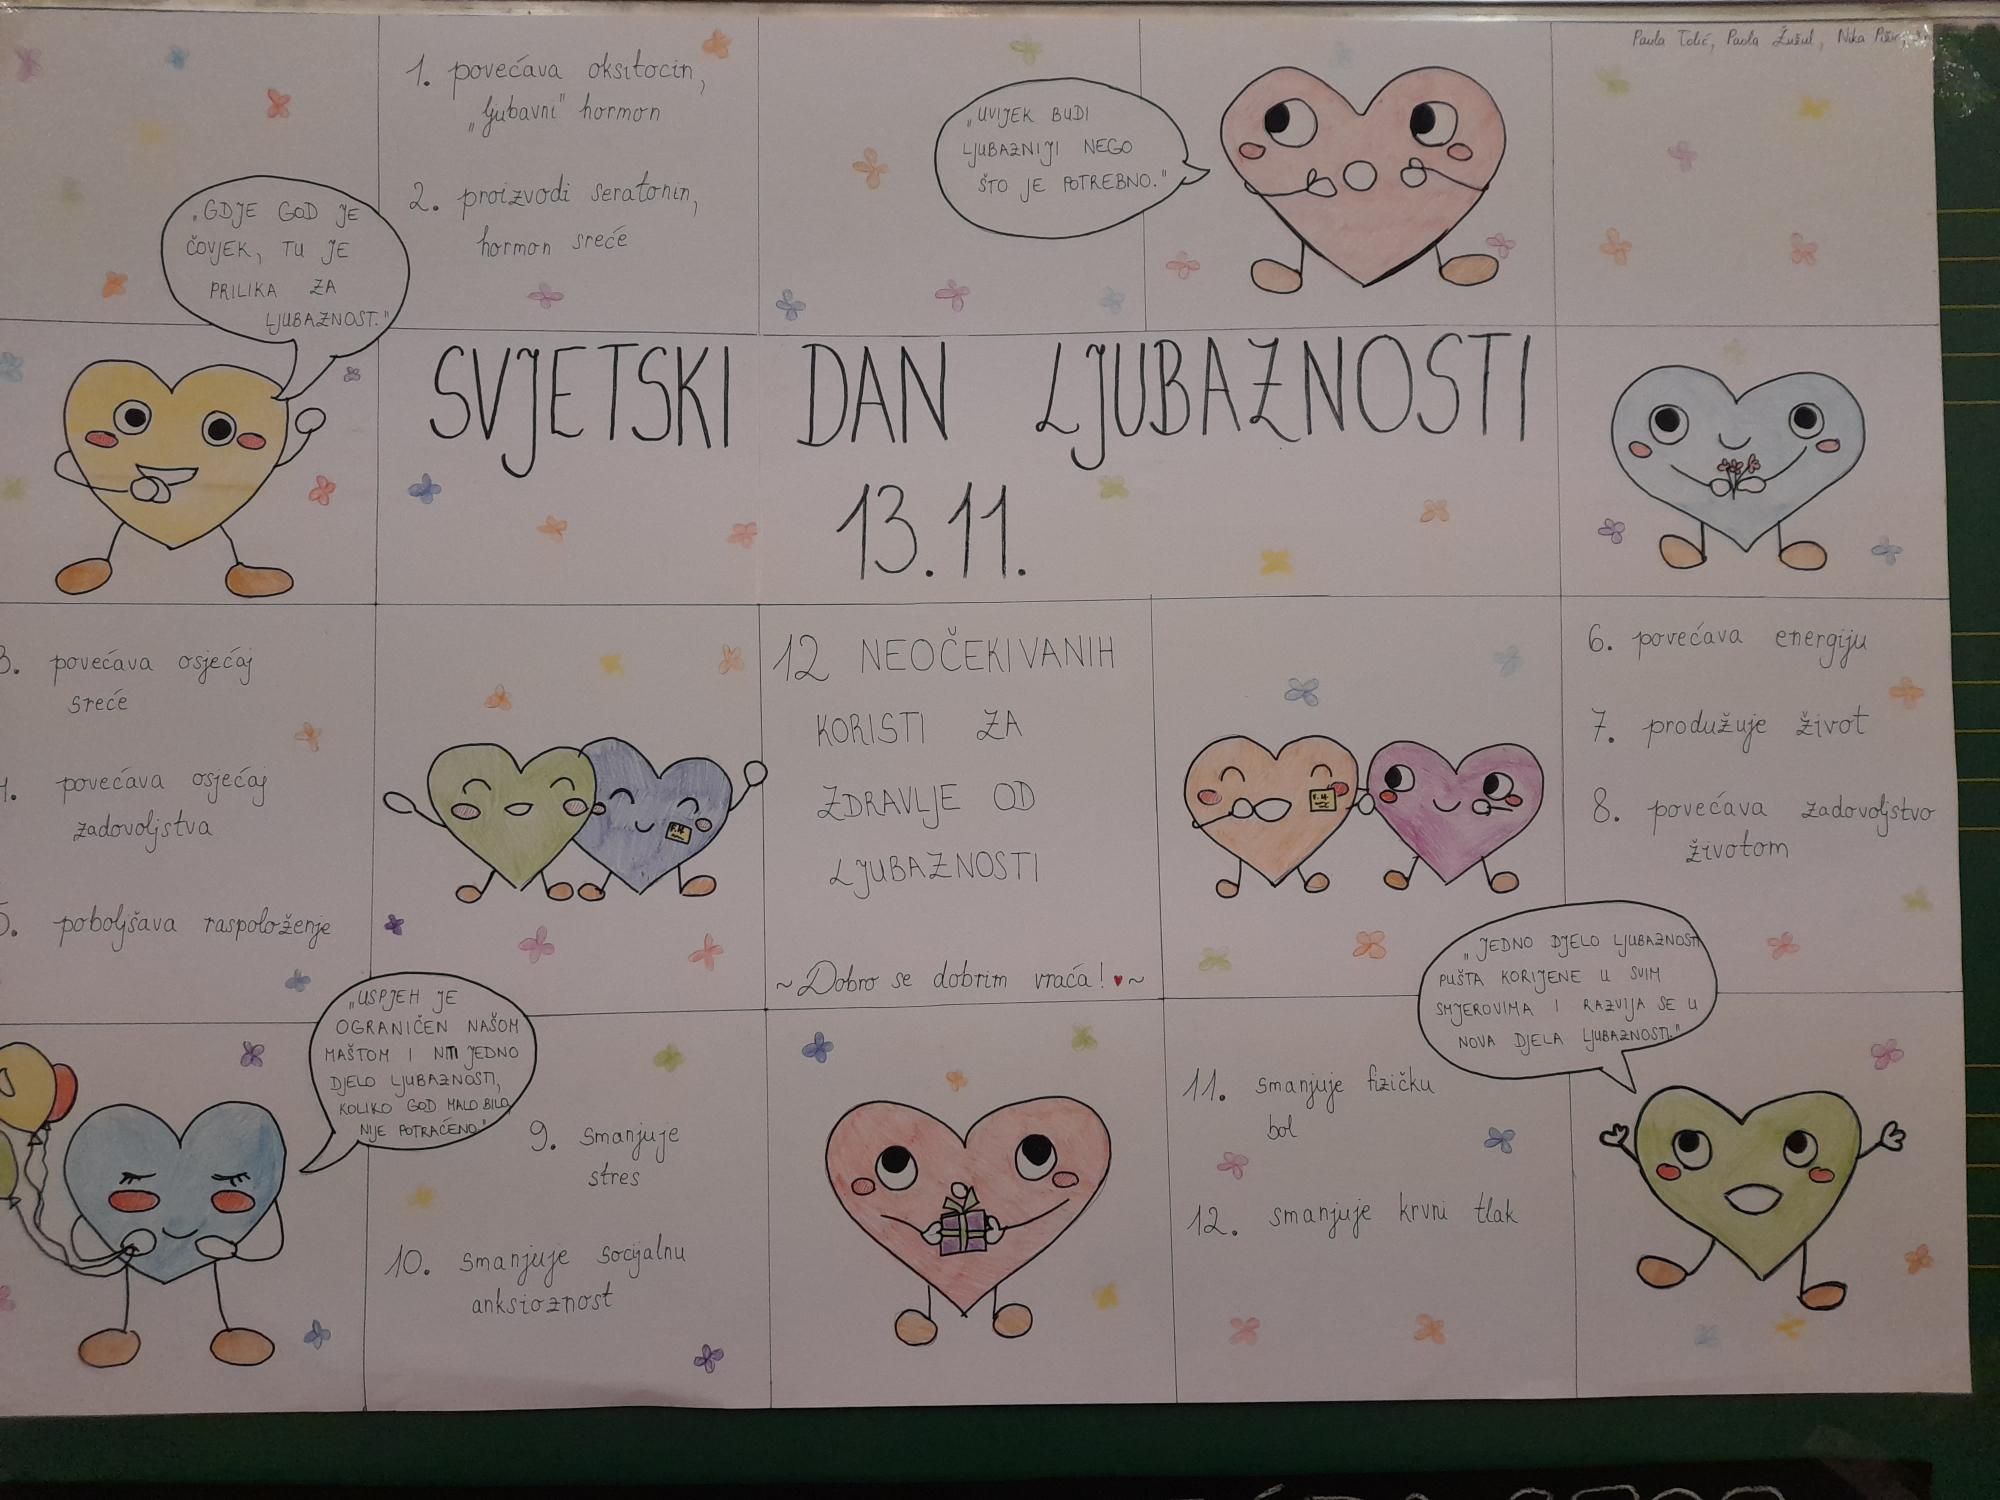 Paula Tolić, Paola Žužul, Nika
1. povećava oksitocin,
„ljubavni" hormon
2. proizvodi seratonin,
hormon sreće
„UVIJEK BUDI
LJUBAZNIJI NEGO
ŠTO JE POTREBNO."
„GDJE GOD JE
ČOVJEK, TU JE
PRILIKA ZA
LJUBAZNOST."
SVJETSKI DAN LJUBAZNOSTI
13.11.
3. povećava osjećaj
sreće
4. povećava osjećaj
zadovoljstva
5. poboljšava raspoloženje
12 NEOČEKIVANIH
KORISTI ZA
ZDRAVLJE OD
LJUBAZNOSTI
~Dobro se dobrim vraća!♥~
6. povećava energiju
7. produžuje život
8. povećava zadovoljstvo
životom
„USPJEH JE
OGRANIČEN NAŠOM
MAŠTOM I NITI JEDNO
DJELO LJUBAZNOSTI,
KOLIKO GOD MALO BILO,
NIJE POTRAĆENO."
9. smanjuje
stres
10. smanjuje socijalnu
anksioznost
„JEDNO DJELO LJUBAZNOSTI
PUŠTA KORIJENE U SVIM
SMJEROVIMA I RAZVIJA SE U
NOVA DJELA LJUBAZNOSTI."
11. smanjuje fizičku
bol
12. smanjuje krvni tlak